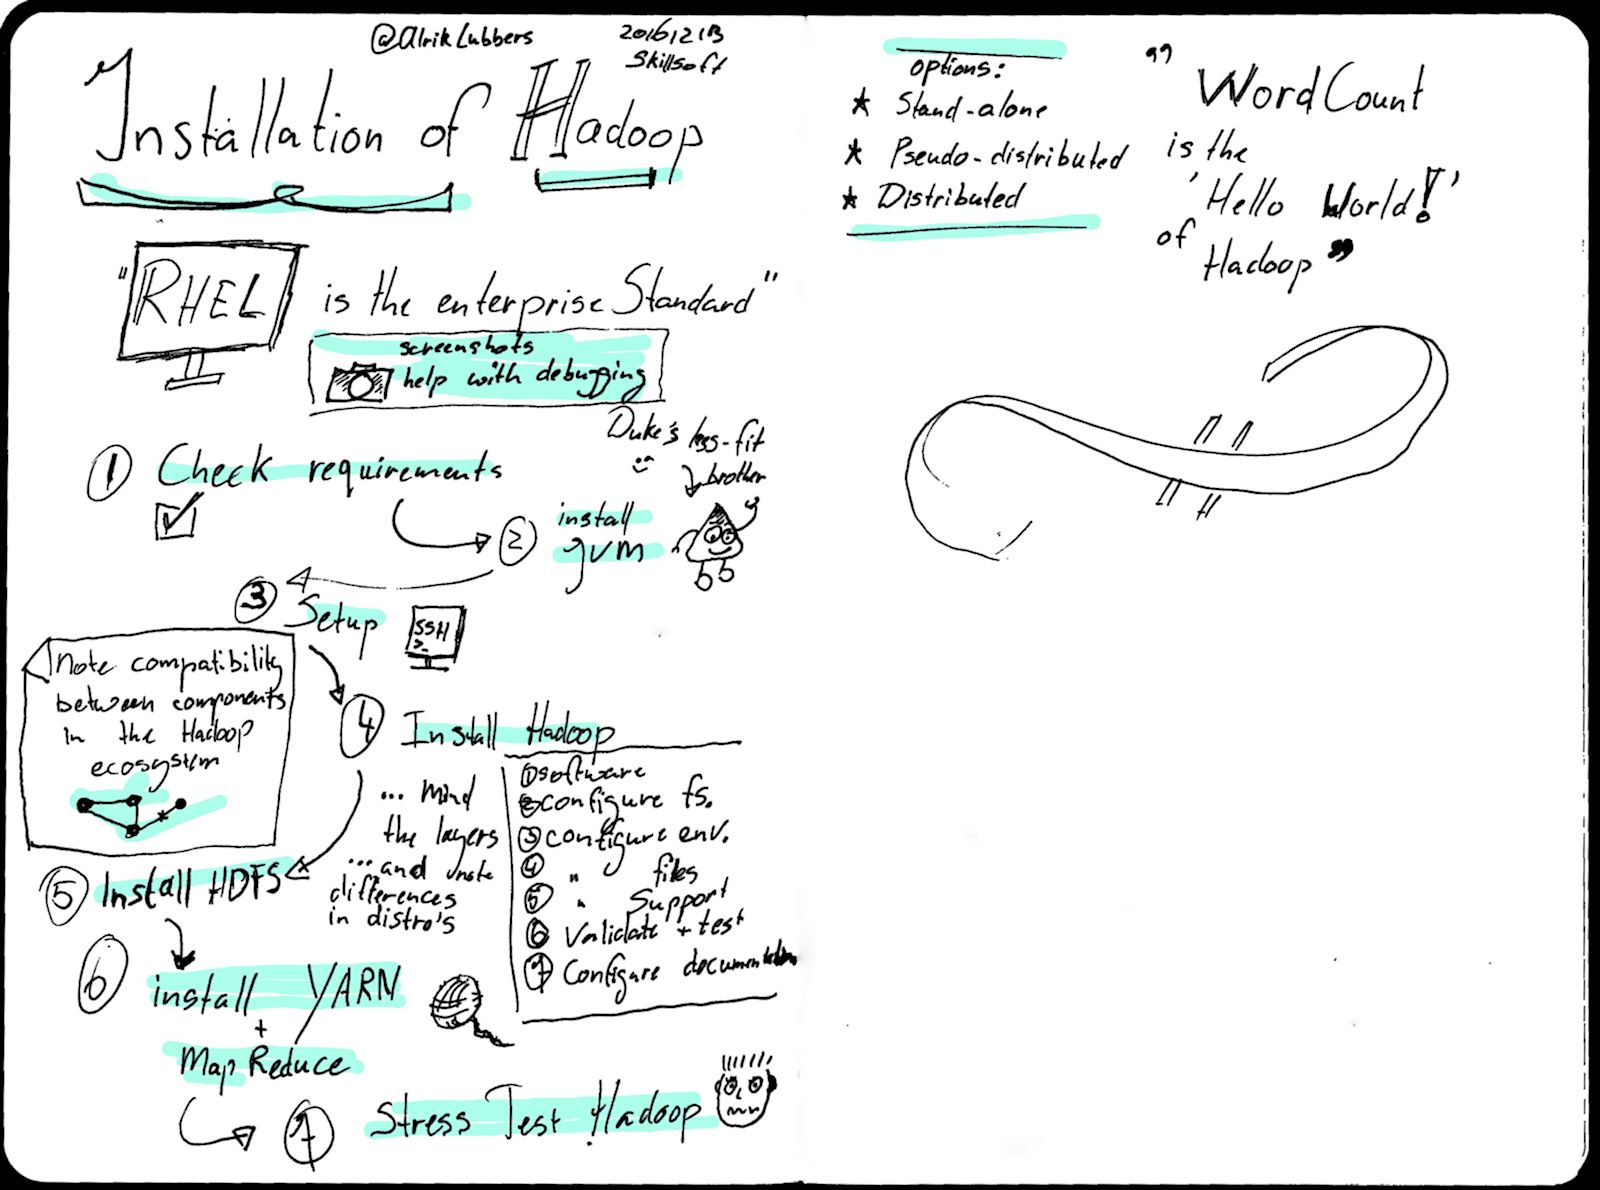 @AlrikLubbers
20161213
Skillsoft
Installation of Hadoop
"RHEL is the enterprise Standard"
screenshots
help with debugging
Duke's less-fit
brother
① Check requirements
② install
jvm
③ Setup
SSH
>_
Note compatibility
between components
in the Hadoop
ecosystem
④ Install Hadoop
... mind
the layers
...and note
differences
in distro's
① software
② configure fs.
③ configure env.
④ " files
⑤ " Support
⑥ Validate + test
⑦ Configure documentation
⑤ Install HDFS
⑥ install YARN
+
MapReduce
⑦ Stress Test Hadoop
options:
★ Stand-alone
★ Pseudo-distributed
★ Distributed
" WordCount
is the
'Hello World!'
of
Hadoop "